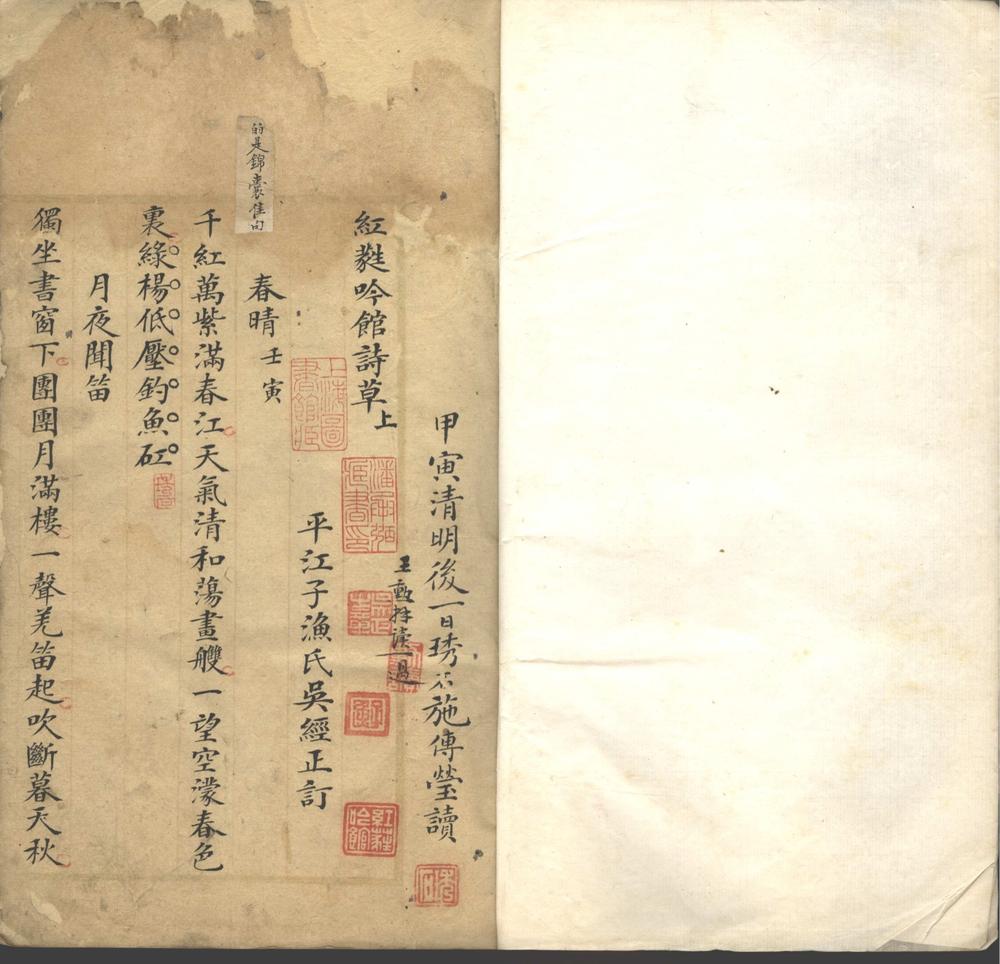 甲寅清明後一日琇石施傳瑩讀
讀一過
紅蕤吟館詩草上
平江子漁氏吳經正訂
春晴 壬寅
的是錦囊佳句
千紅萬紫滿春江天氣清和蕩畫艭一望空濛春色
裏綠楊低壓釣魚矼
月夜聞笛
獨坐書窗下團團月滿樓一聲羌笛起吹斷暮天秋
上海圖書館藏
潘承弼藏書印
紅蕤吟館